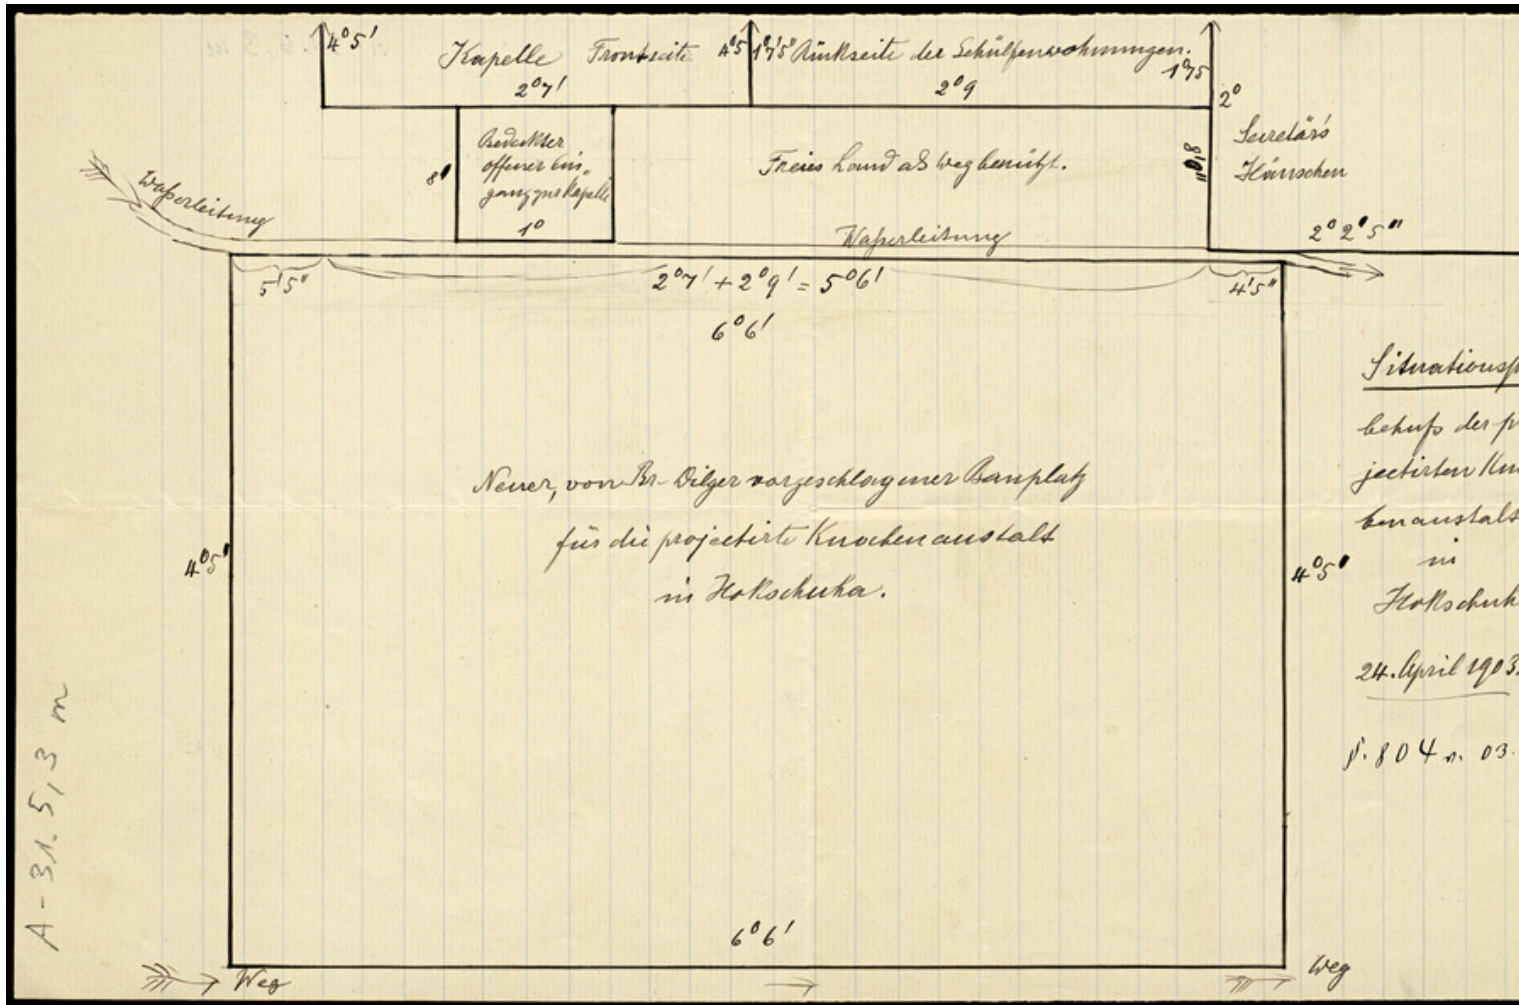 4°5'
Kapelle Frontseite
2°7'
4°5
1°7'5" Rückseite der Schülfenwohnungen.
1°75
2°9
2°
Bedeckter
offener Ein„
gang zur Kapelle
1°
8'
Freies Land als Weg benützt.
8'0"
Secretärs
Häuschen
2°2'5"
Waßerleitung
Waßerleitung
5'5"
2°7' + 2°9' = 5°6'
4'5"
6°6'
Neuer, von Br. Dilger vorgeschlagener Bauplatz
für die projectirte Knabenanstalt
in Hokschuka.
4°5'
4°5'
6°6'
Weg
Weg
Situationsp
behufs der pr
jectirten Kna
benanstalt
in
Hokschuk
24. April 1903.
§. 804 v. 03.
A-31.5,3 m